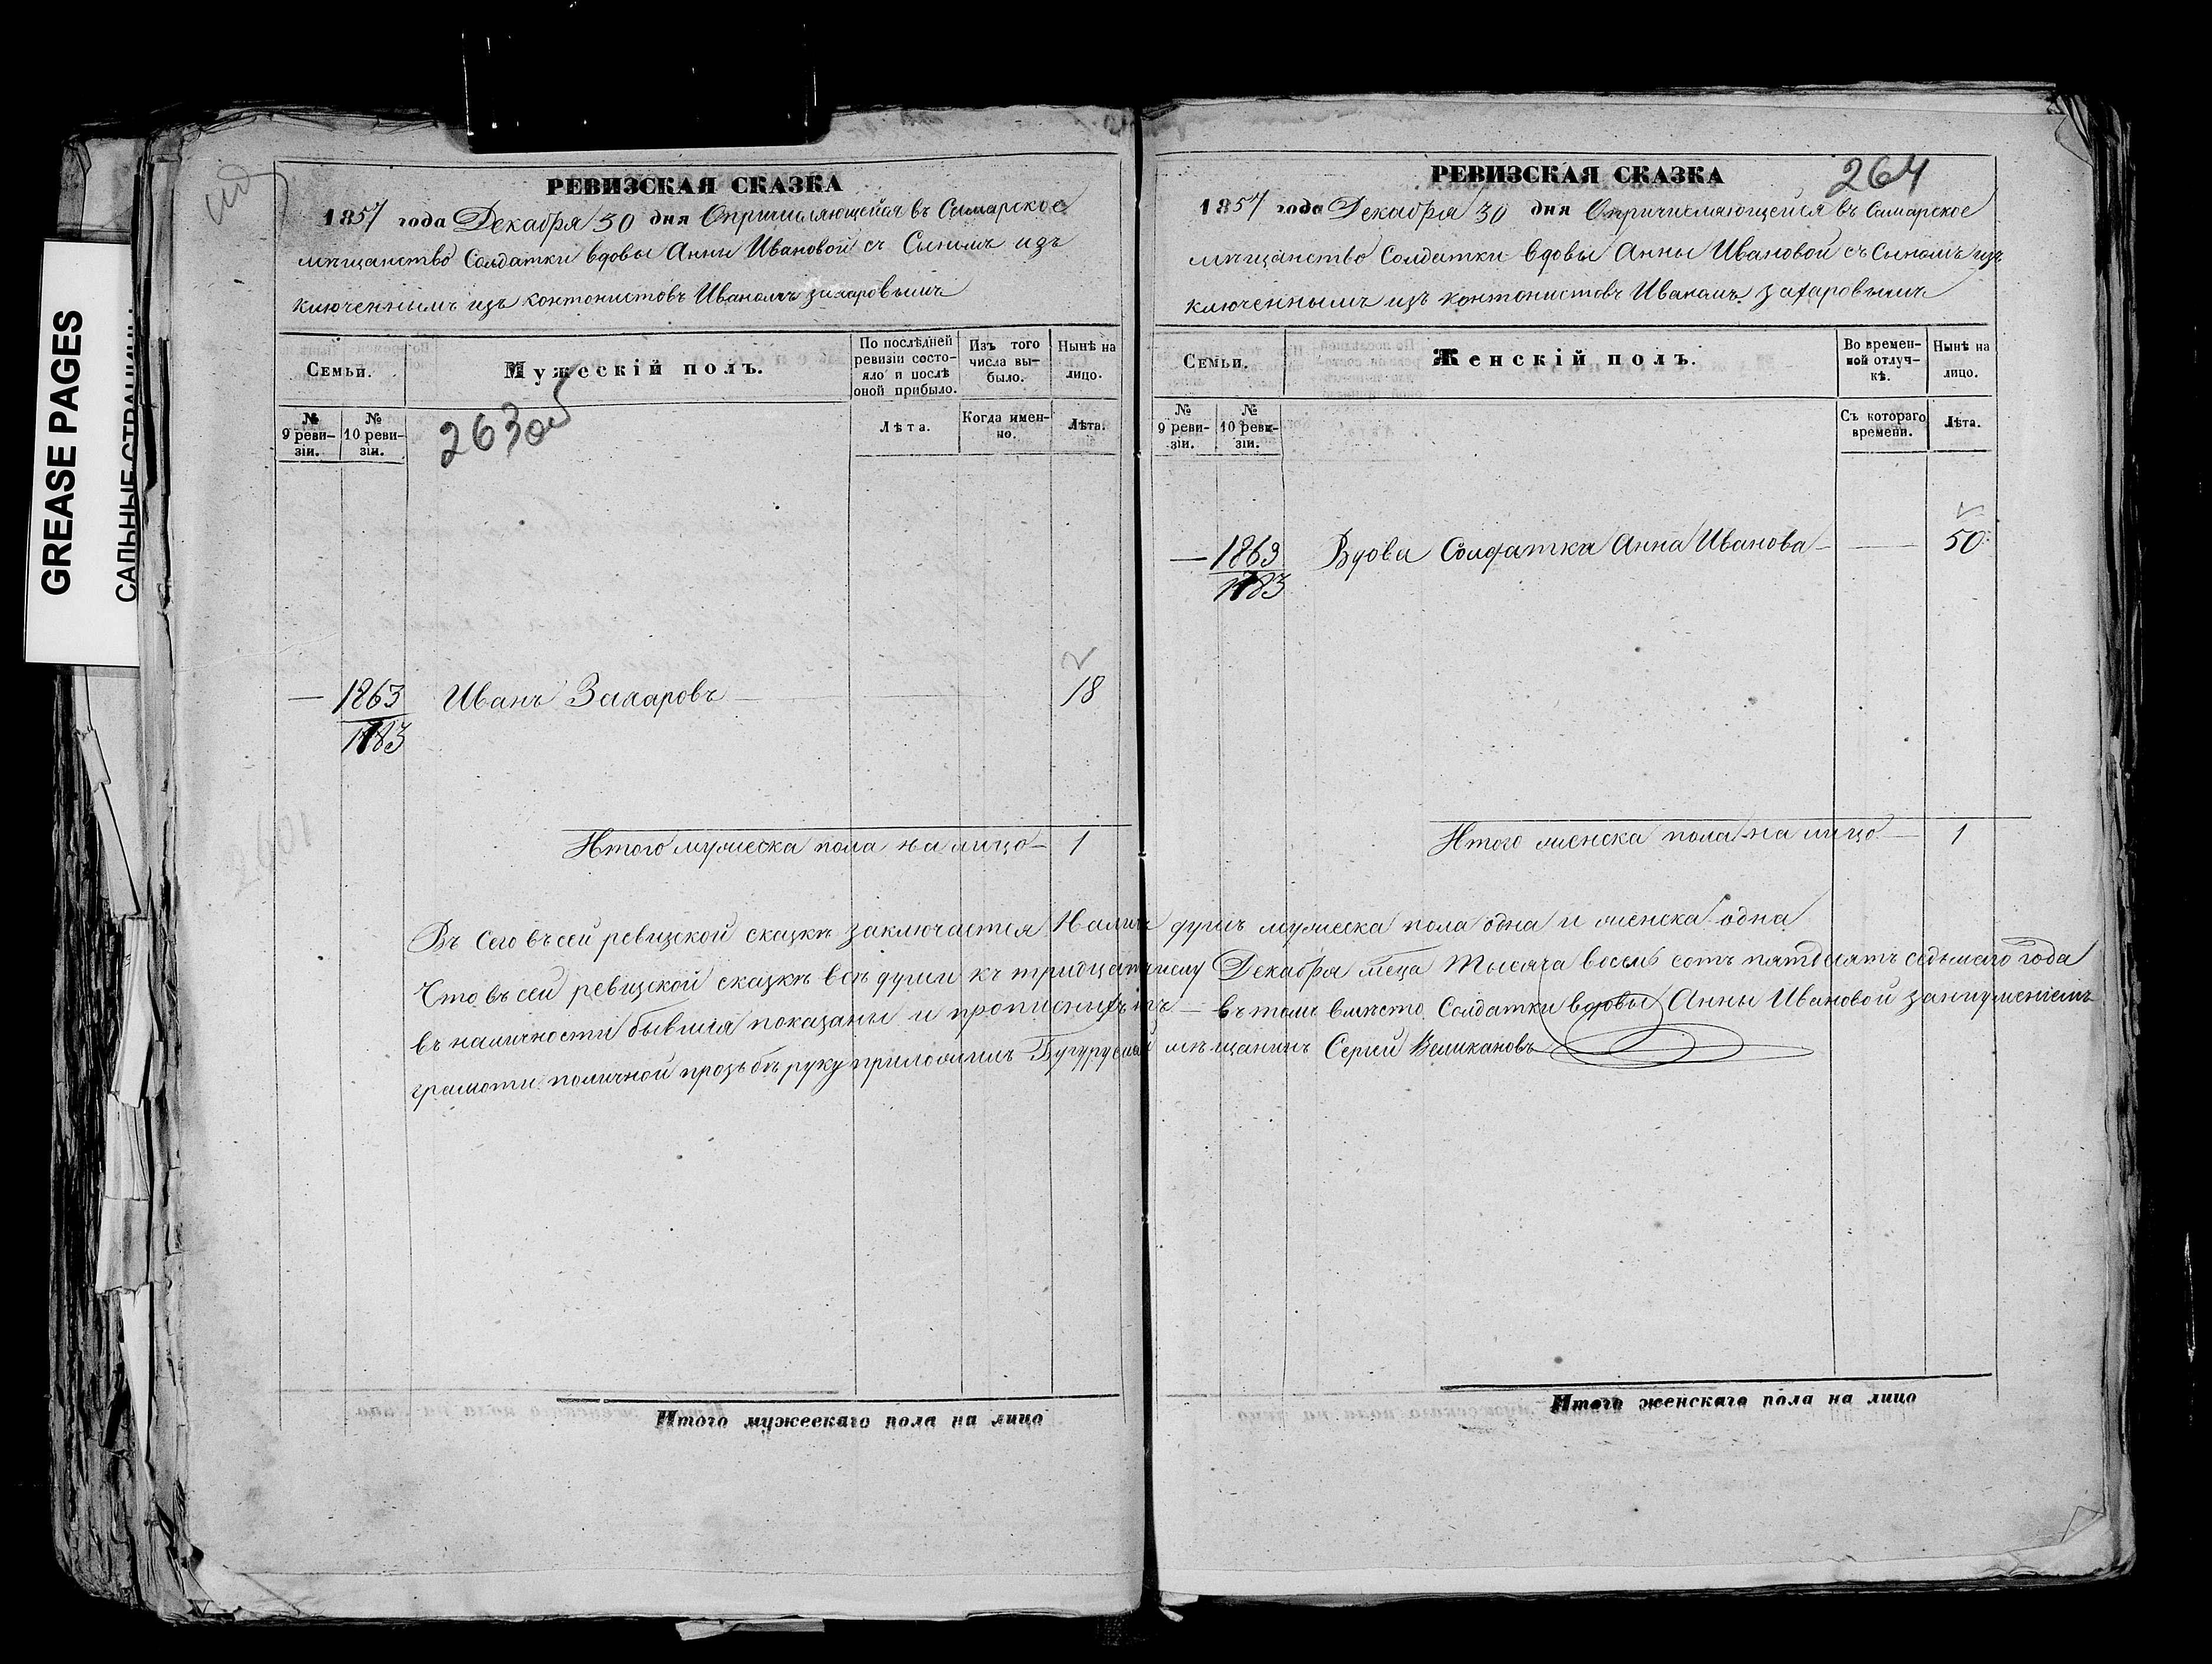 GREASE PAGES
САЛЬНЫЕ СТРАНИЦЫ
РЕВИЗСКАЯ СКАЗКА
1857 года Декабря 30 дня Опричисляющейся въ Самарское
мѣщанство Солдатки вдовы Анны Ивановой съ Сыномъ изъ
ключеннымъ изъ контонистовъ Иваномъ Захаровымъ
Семьи.
Мужескій полъ.
По послѣдней ревизіи состояло и послѣ оной прибыло.
Изъ того числа выбыло.
Нынѣ на лицо.
№ 9 ревизіи.
№ 10 ревизіи.
263об
Лѣта.
Когда именно.
Лѣта.
— 1863 Иванъ Захаровъ — 18
1783
Итого мужеска пола на лицо — 1
РЕВИЗСКАЯ СКАЗКА
264
1857 года Декабря 30 дня Опричисляющейся въ Самарское
мѣщанство Солдатки вдовы Анны Ивановой съ Сыномъ изъ
ключеннымъ изъ контонистовъ Иваномъ Захаровымъ
Семьи.
Женскій полъ.
Во временной отлучкѣ.
Нынѣ на лицо.
№ 9 ревизіи.
№ 10 ревизіи.
Съ котораго времени.
Лѣта.
— 1863 Вдова Солдатка Анна Иванова — — 50
1783
Итого женска пола на лицо — 1
Въ Сего въ сей ревизской сказкѣ заключается Налич душъ мужеска пола одна и женска одна
Что въ сей ревизской сказкѣ всѣ души къ тридцат числу Декабря мѣца Тысяча восемь сотъ пятдесятъ седьмаго года
въ наличности бывшія показаны и прописныхъ нѣтъ — въ томъ вмѣсто Солдатки вдовы Анны Ивановой за неуменіемъ
грамоти поличной прозьбѣ руку приложилъ Бугурусланский мѣщанинъ Сергей Великановъ
Итого мужескаго пола на лицо
Итого женскаго пола на лицо